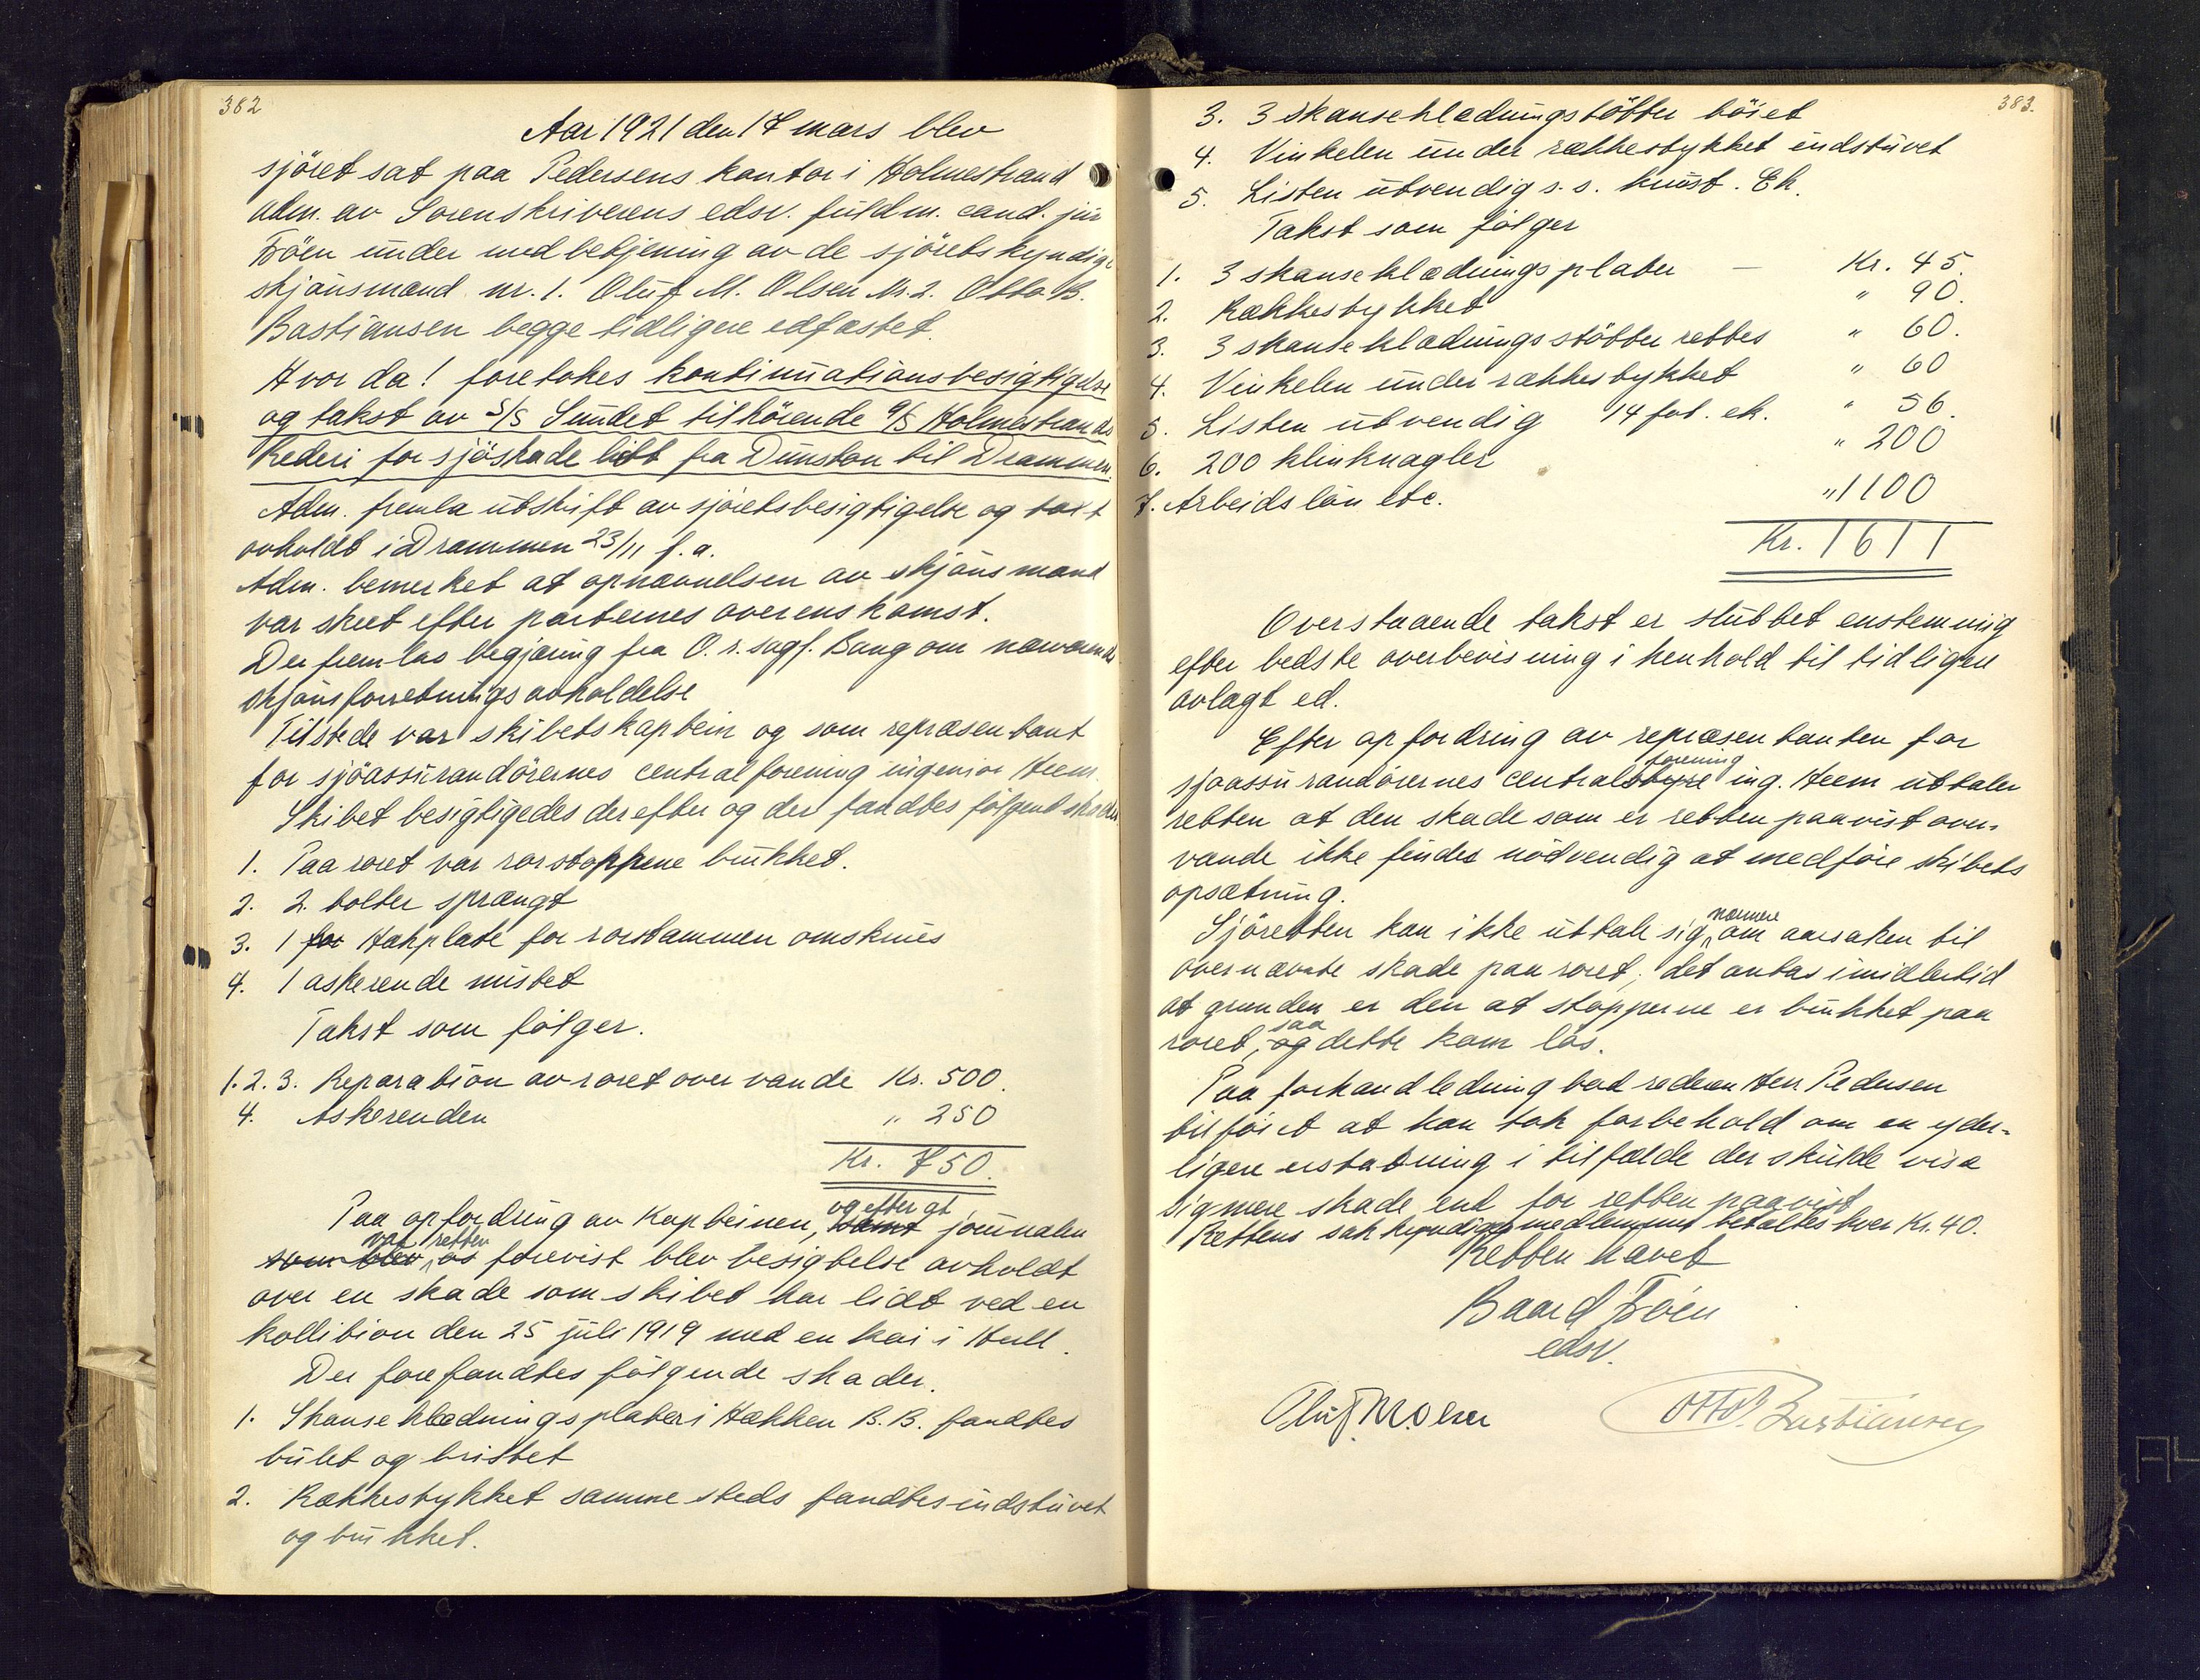 382
Aar 1921 den 17 mars blev
sjöret sat paa Pedersens kontor i Holmestrand
adm. av Sorenskriverens edsv. fuldm. cand. jur
Tröen under medbetjening av de sjöretskyndige
skjönsmænd nr. 1. Oluf M. Olsen Nr. 2. Otto B.
Bastiansen begge tidligere edfæstet.
Hvor da! foretokes kontinuationsbesigtigelse
og takst av S/S Sundet tilhörende A/S Holmestrands
Rederi for sjöskade lidt fra Dunston til Drammen.
Adm. fremla utskrift av sjöretsbesigtigelse og taxt
avholdt i Drammen 23/11 f. a.
Adm. bemerket at opnævnelsen av skjönsmænd
var skeet efter parternes overenskomst.
Der fremlaa begjæring fra O. r. sagf. Bang om nærværende
skjönsforretnings avholdelse
Tilstede var skibets kaptein og som repræsentant
for sjöassurandörernes centralforening ingeniör Heem.
Skibet besigtigedes derefter og der fandtes følgend skader
1. Paa roret var rorstoppene bukket.
2. 2 bolter sprængt
3. 1 for Hakplate for rorstammen omskrues
4. 1 askerende mistet
Takst som følger.
1. 2. 3. Reparation av roret over vande Kr. 500.
4. Askerenden " 250
Kr. 750.
og efter at
Paa opfordring av Kapteinen, samt journalen
var retten
som blev os forevist blev besigtelse avholdt
over en skade som skibet har lidt ved en
kollition den 25 juli 1919 med en kai i Hull.
Der forefandtes følgende skader.
1. Skanseklædningsplater i Hækken B. B. fandtes
bulet og bristet
2. Rækkestykket samme steds fandtes indstuvet
og bukket.
383.
3. 3 skanseklædningstötter böiet
4. Vinkelen under rækkestykket indstuvet
5. Listen utvendig s. s. knust. Ek.
Takst som følger
1. 3 skanseklædningsplater — Kr. 45.
2. Rækkestykket " 90.
3. 3 skanseklædningsstötter rettes " 60.
4. Vinkelen under rækkestykket " 60
5. Listen utvendig 14 fot. ek. " 56.
6. 200 klinknagler " 200
7. Arbeidslön etc. " 1100
Kr. 1611
Overstaaende takst er sluttet enstemmig
efter bedste overbevisning i henhold til tidligere
avlagt ed.
Efter opfordring av repræsentanten for
forening
sjöassurandörernes centralstyre ing. Heem uttaler
retten at den skade som er retten paavist over-
vande ikke findes nödvendig at medföre skibets
opsætning.
nærmere
Sjöretten kan ikke uttale sig om aarsaken til
overnævnte skade paa roret; det antas imidlertid
at grunden er den at stopperne er bukket paa
saa
roret, og dette kom lös.
Paa forhandledning bad rederen Herr Pedersen
tilföiet at han tok forbehold om en yder-
ligere erstatning i tilfælde der skulde vise
sig mere skade end for retten paavist
Rettens sakkyndige medlemmer betaltes hver Kr. 40.
Retten hævet
Baard Tröen
edsv.
Oluf M Olsen Otto B. Bastiansen